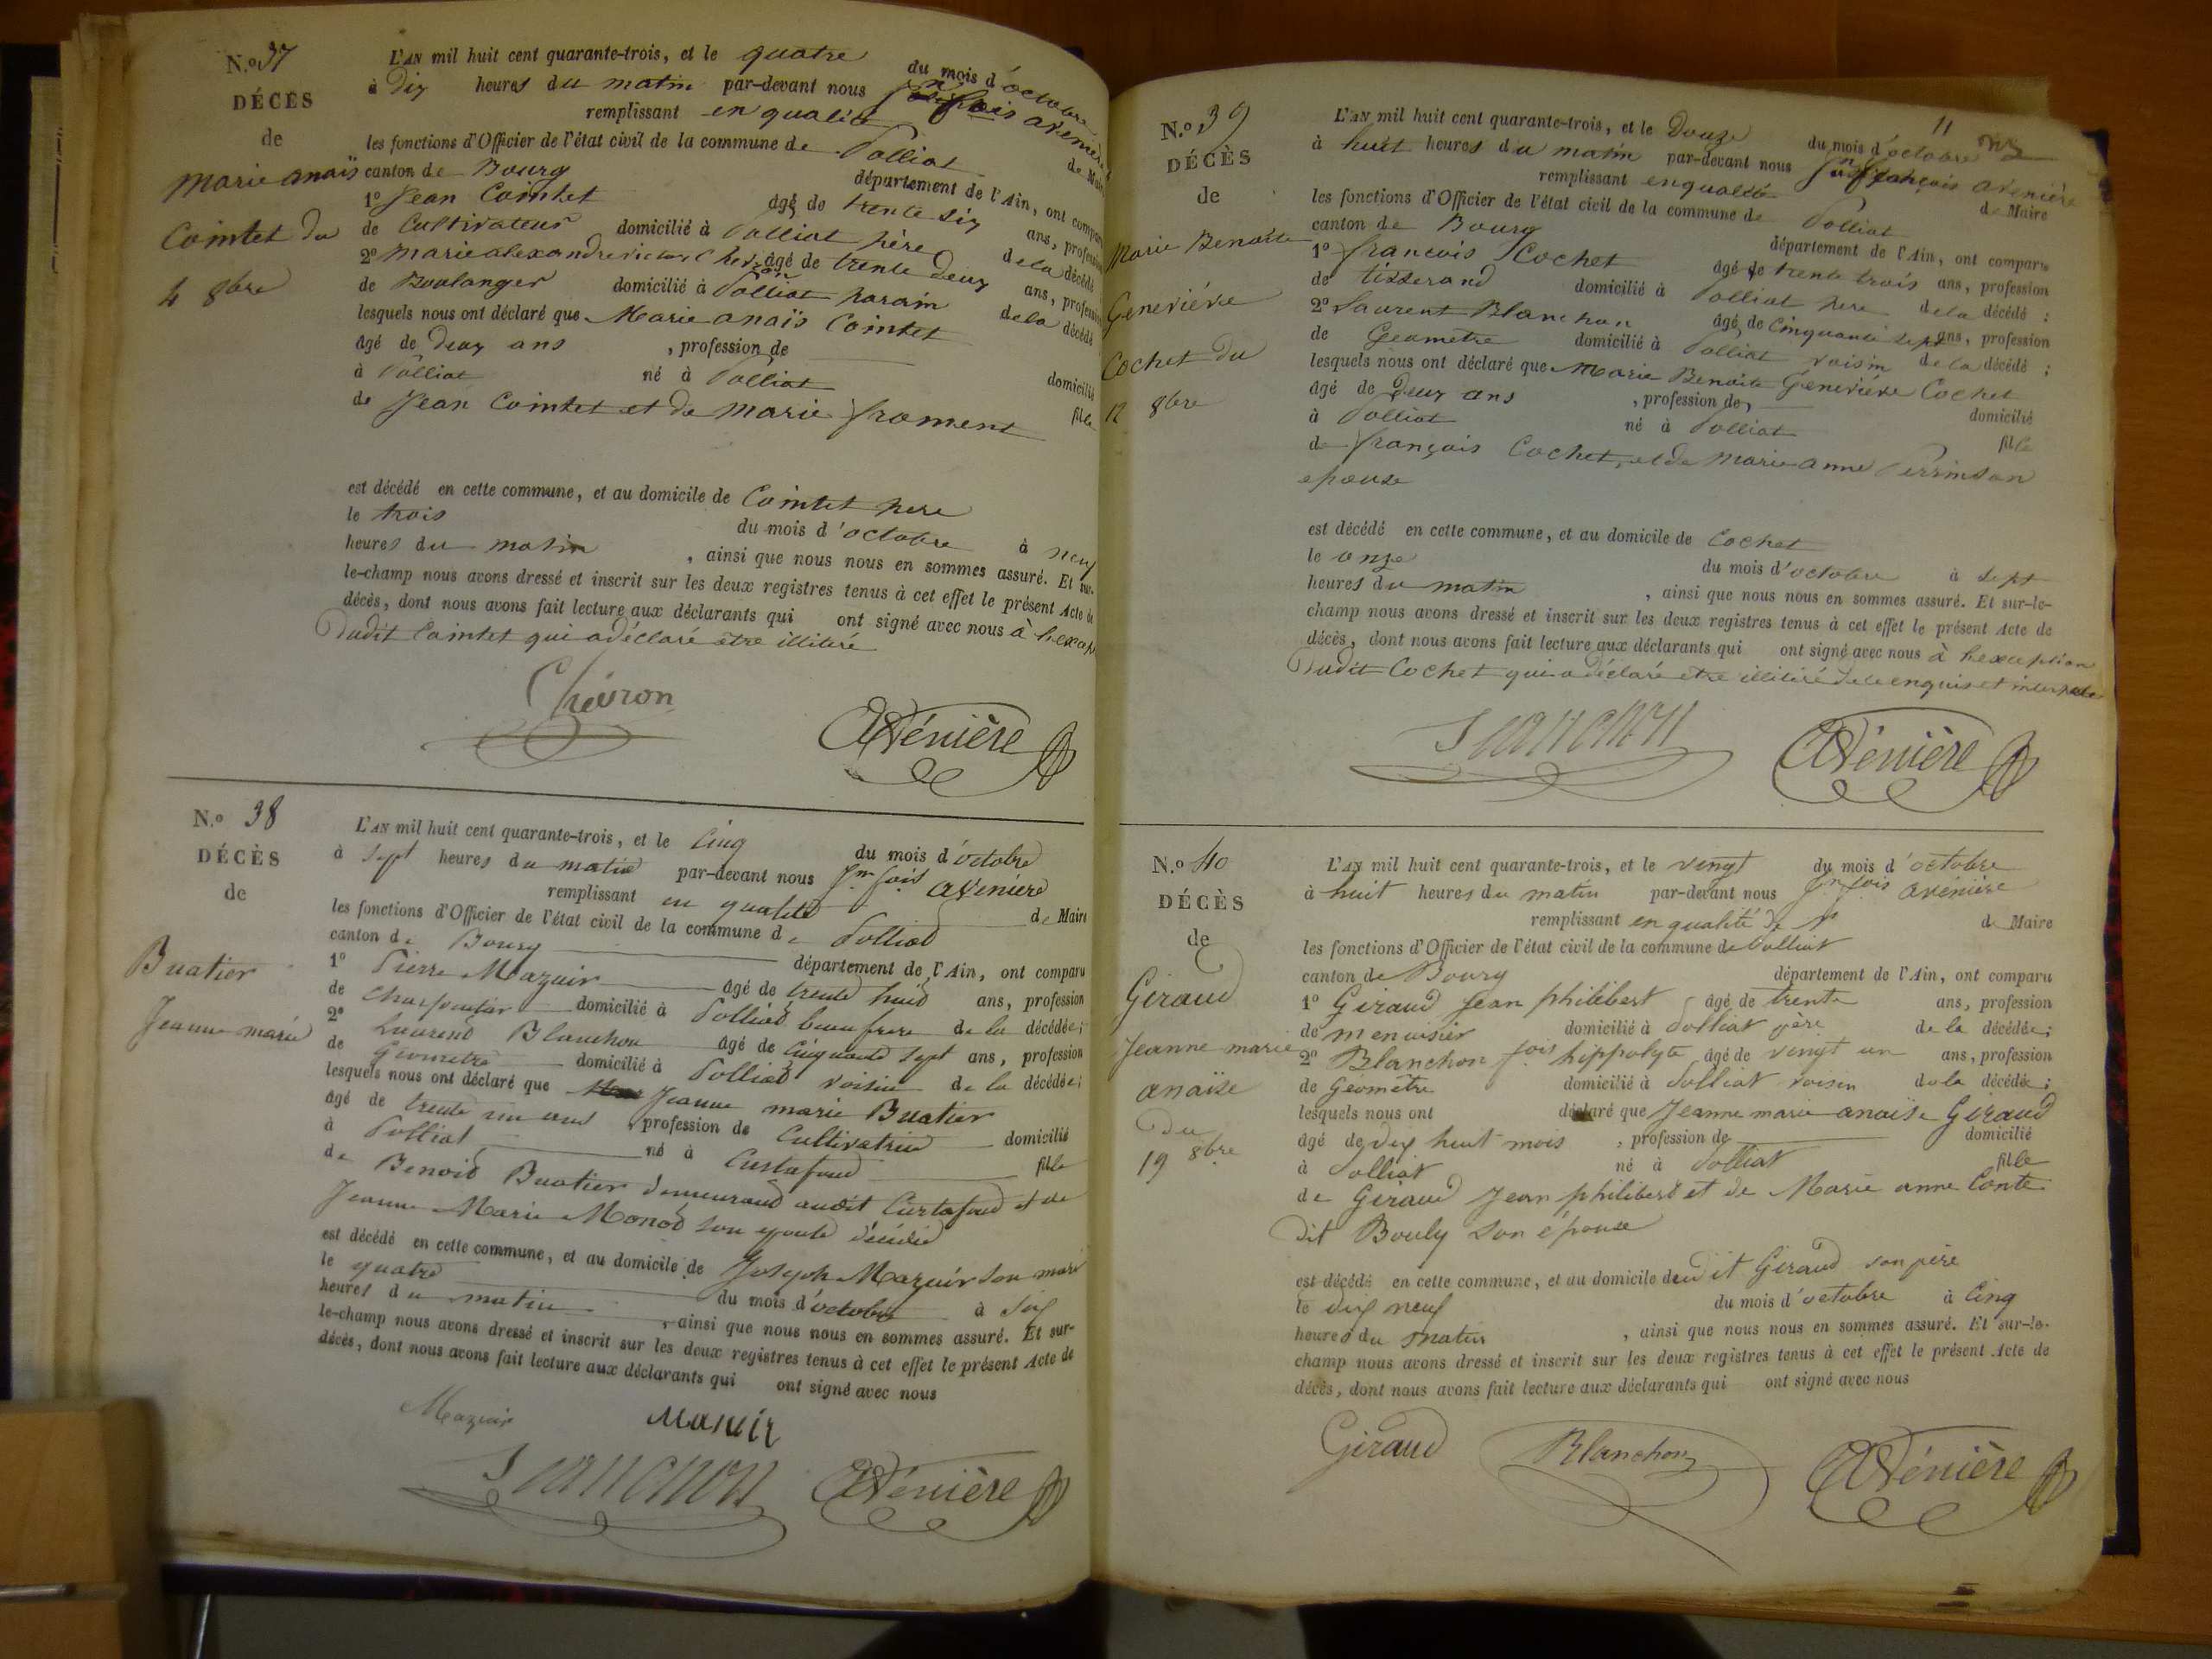 N.º 37
DÉCÈS
de
Marie anaïs
Cointet du
4 8bre
L'AN mil huit cent quarante-trois, et le quatre du mois d'octobre
à Dix heures du matin par-devant nous avenière
remplissant en qualité de Maire
les fonctions d'Officier de l'état civil de la commune de Polliat
canton de Bourg département de l'Ain, ont comparu
1º Jean Cointet âgé de trente six ans, profession
de Cultivateur domicilié à Polliat père de la décédé
2º marie alexandre victor Chevron âgé de trente deux ans, profession
de Boulanger domicilié à Polliat parain de la décédé
lesquels nous ont déclaré que Marie anaïs Cointet
âgé de deux ans , profession de domicilié
à Polliat né à Polliat fille
de Jean Cointet et de Marie froment
est décédé en cette commune, et au domicile de Cointet pere
le trois du mois d'octobre à neuf
heures du matin , ainsi que nous nous en sommes assuré. Et sur-
le-champ nous avons dressé et inscrit sur les deux registres tenus à cet effet le présent Acte de
décès, dont nous avons fait lecture aux déclarants qui ont signé avec nous à l'excep
Dudit Cointet qui a déclaré etre illitéré
Chévron AVénière
N.º 38
DÉCÈS
de
Buatier
Jeanne marie
L'AN mil huit cent quarante-trois, et le Cinq du mois d'octobre
à sept heures du matin par-devant nous Jn fois avenière
remplissant en qualité de Maire
les fonctions d'Officier de l'état civil de la commune de Polliat
canton de Bourg département de l'Ain, ont comparu
1º Pierre Mazuir âgé de trente huit ans, profession
de charpentier domicilié à Polliat beau frere de la décédée;
2º Laurent Blanchon âgé de cinquante sept ans, profession
de Géometre domicilié à Polliat voisin de la décédée;
lesquels nous ont déclaré que Jeanne marie Buatier
âgé de trente un ans , profession de Cultivatrice domicilié
à Polliat né à Curtafond fille
de Benoit Buatier demeurand audit Curtafond et de
Jeanne Marie Monod son epouse décédée
est décédé en cette commune, et au domicile de Joseph Mazuir son mari
le quatre du mois d'octobre à six
heures du matin , ainsi que nous nous en sommes assuré. Et sur-
le-champ nous avons dressé et inscrit sur les deux registres tenus à cet effet le présent Acte de
décès, dont nous avons fait lecture aux déclarants qui ont signé avec nous
Mazuir Mazuir
Blanchon AVénière
11
N.º 39
DÉCÈS
de
Marie Benoite
Geneviéve
Cochet du
12 8bre
L'AN mil huit cent quarante-trois, et le Douze du mois d'octobre
à huit heures du matin par-devant nous Jn françois avenière
remplissant en qualité de Maire
les fonctions d'Officier de l'état civil de la commune de Polliat
canton de Bourg département de l'Ain, ont comparu
1º francois Cochet âgé de trente trois ans, profession
de tisserand domicilié à Polliat pere de la décédé :
2º Laurent Blanchon âgé de Cinquante sept ans, profession
de Geometre domicilié à Polliat voisin de la décédé ;
lesquels nous ont déclaré que Marie Benoite Geneviéve Cochet
âgé de Deux ans , profession de, domicilié
à Polliat né à Polliat fille
de françois Cochet, et de Marie anne Perrinson
epouse
est décédé en cette commune, et au domicile de Cochet
le onze du mois d'octobre à sept
heures du matin , ainsi que nous nous en sommes assuré. Et sur-le-
champ nous avons dressé et inscrit sur les deux registres tenus à cet effet le présent Acte de
décès, dont nous avons fait lecture aux déclarants qui ont signé avec nous à l'exception
Dudit Cochet qui a déclaré etre illitéré de ce enquis et interpelé
Blanchon AVénière
N.º 40
DÉCÈS
de
Giraud
Jeanne marie
anaïse
Du
19 8bre
L'AN mil huit cent quarante-trois, et le vingt du mois d'octobre
à huit heures du matin par-devant nous Jn fois avénière
remplissant en qualité de de Maire
les fonctions d'Officier de l'état civil de la commune de Polliat
canton de Bourg département de l'Ain, ont comparu
1º Giraud Jean philibert âgé de trente ans, profession
de menuisier domicilié à Polliat père de la décédée;
2º Blanchon fois hippolyte âgé de vingt un ans, profession
de Géomètre domicilié à Polliat voisin de la décédée;
lesquels nous ont déclaré que Jeanne marie anaïse Giraud
âgé de dix huit mois , profession de domicilié
à Polliat né à Polliat fille
de Giraud Jean philibert et de Marie anne Conte
dit Bouly son épouse
est décédé en cette commune, et au domicile dudit Giraud son père
le dix neuf du mois d'octobre à Cinq
heures du matin , ainsi que nous nous en sommes assuré. Et sur-le-
champ nous avons dressé et inscrit sur les deux registres tenus à cet effet le présent Acte de
décès, dont nous avons fait lecture aux déclarants qui ont signé avec nous
Giraud Blanchon AVénière